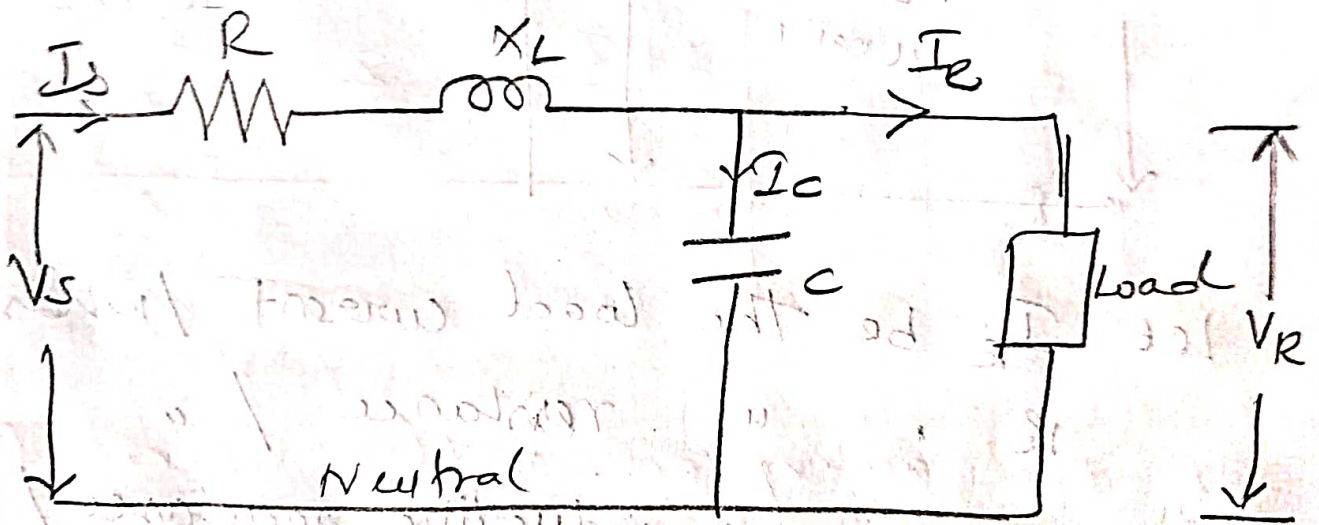 Is
R
XL
IR
Ic
C
Vs
Load
VR
Neutral